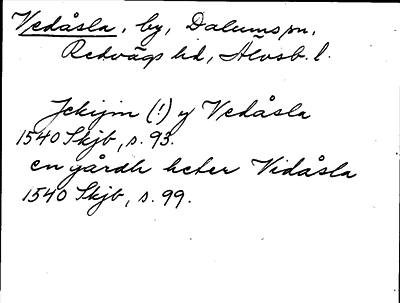 Vedåsla, by, Dalums sn,
Redvägs hd, Älvsb. l.
Jckijm (!) y Vedåsla
1540 Skjb, s. 93.
en gårdh heter Vidåsla
1540 Skjb, s. 99.